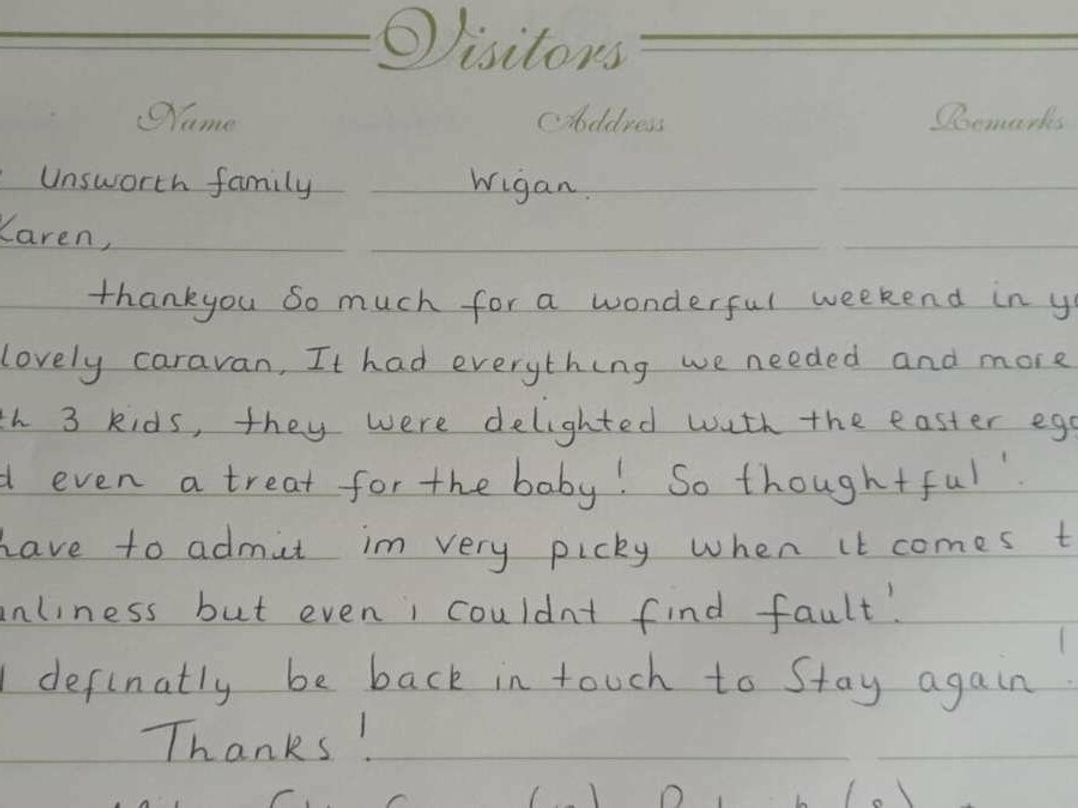 Visitors
Name Address Remarks
Unsworth family Wigan.
Karen,
thankyou so much for a wonderful weekend in
lovely caravan, It had everything we needed and more
3 kids, they were delighted with the easter
even a treat for the baby! So thoughtful!
have to admit im very picky when it comes
but even i couldnt find fault!
definatly be back in touch to stay again!
Thanks!